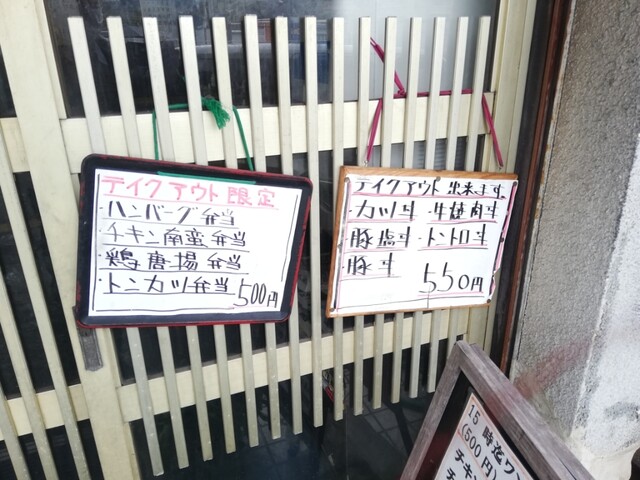 テイクアウト限定
・ハンバーグ弁当
・チキン南蛮弁当
・鶏唐揚弁当
・トンカツ弁当
500円
テイクアウト出来ます
・カツ丼 ・牛焼肉丼
・豚塩丼 ・トントロ丼
・豚丼
550円
15時迄ワ
(500円)
チキ